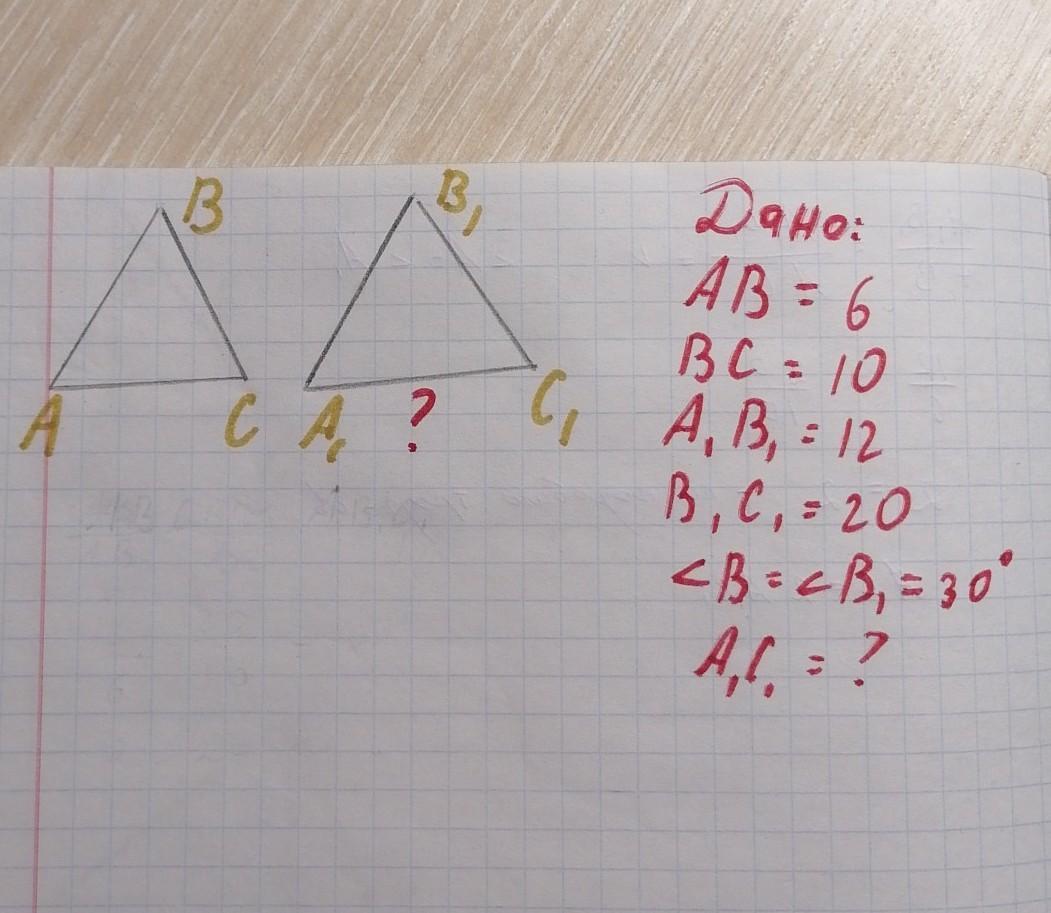 B
B₁
A
C
A₁
?
C₁
Дано:
AB = 6
BC = 10
A₁B₁ = 12
B₁C₁ = 20
∠B = ∠B₁ = 30°
A₁C₁ = ?